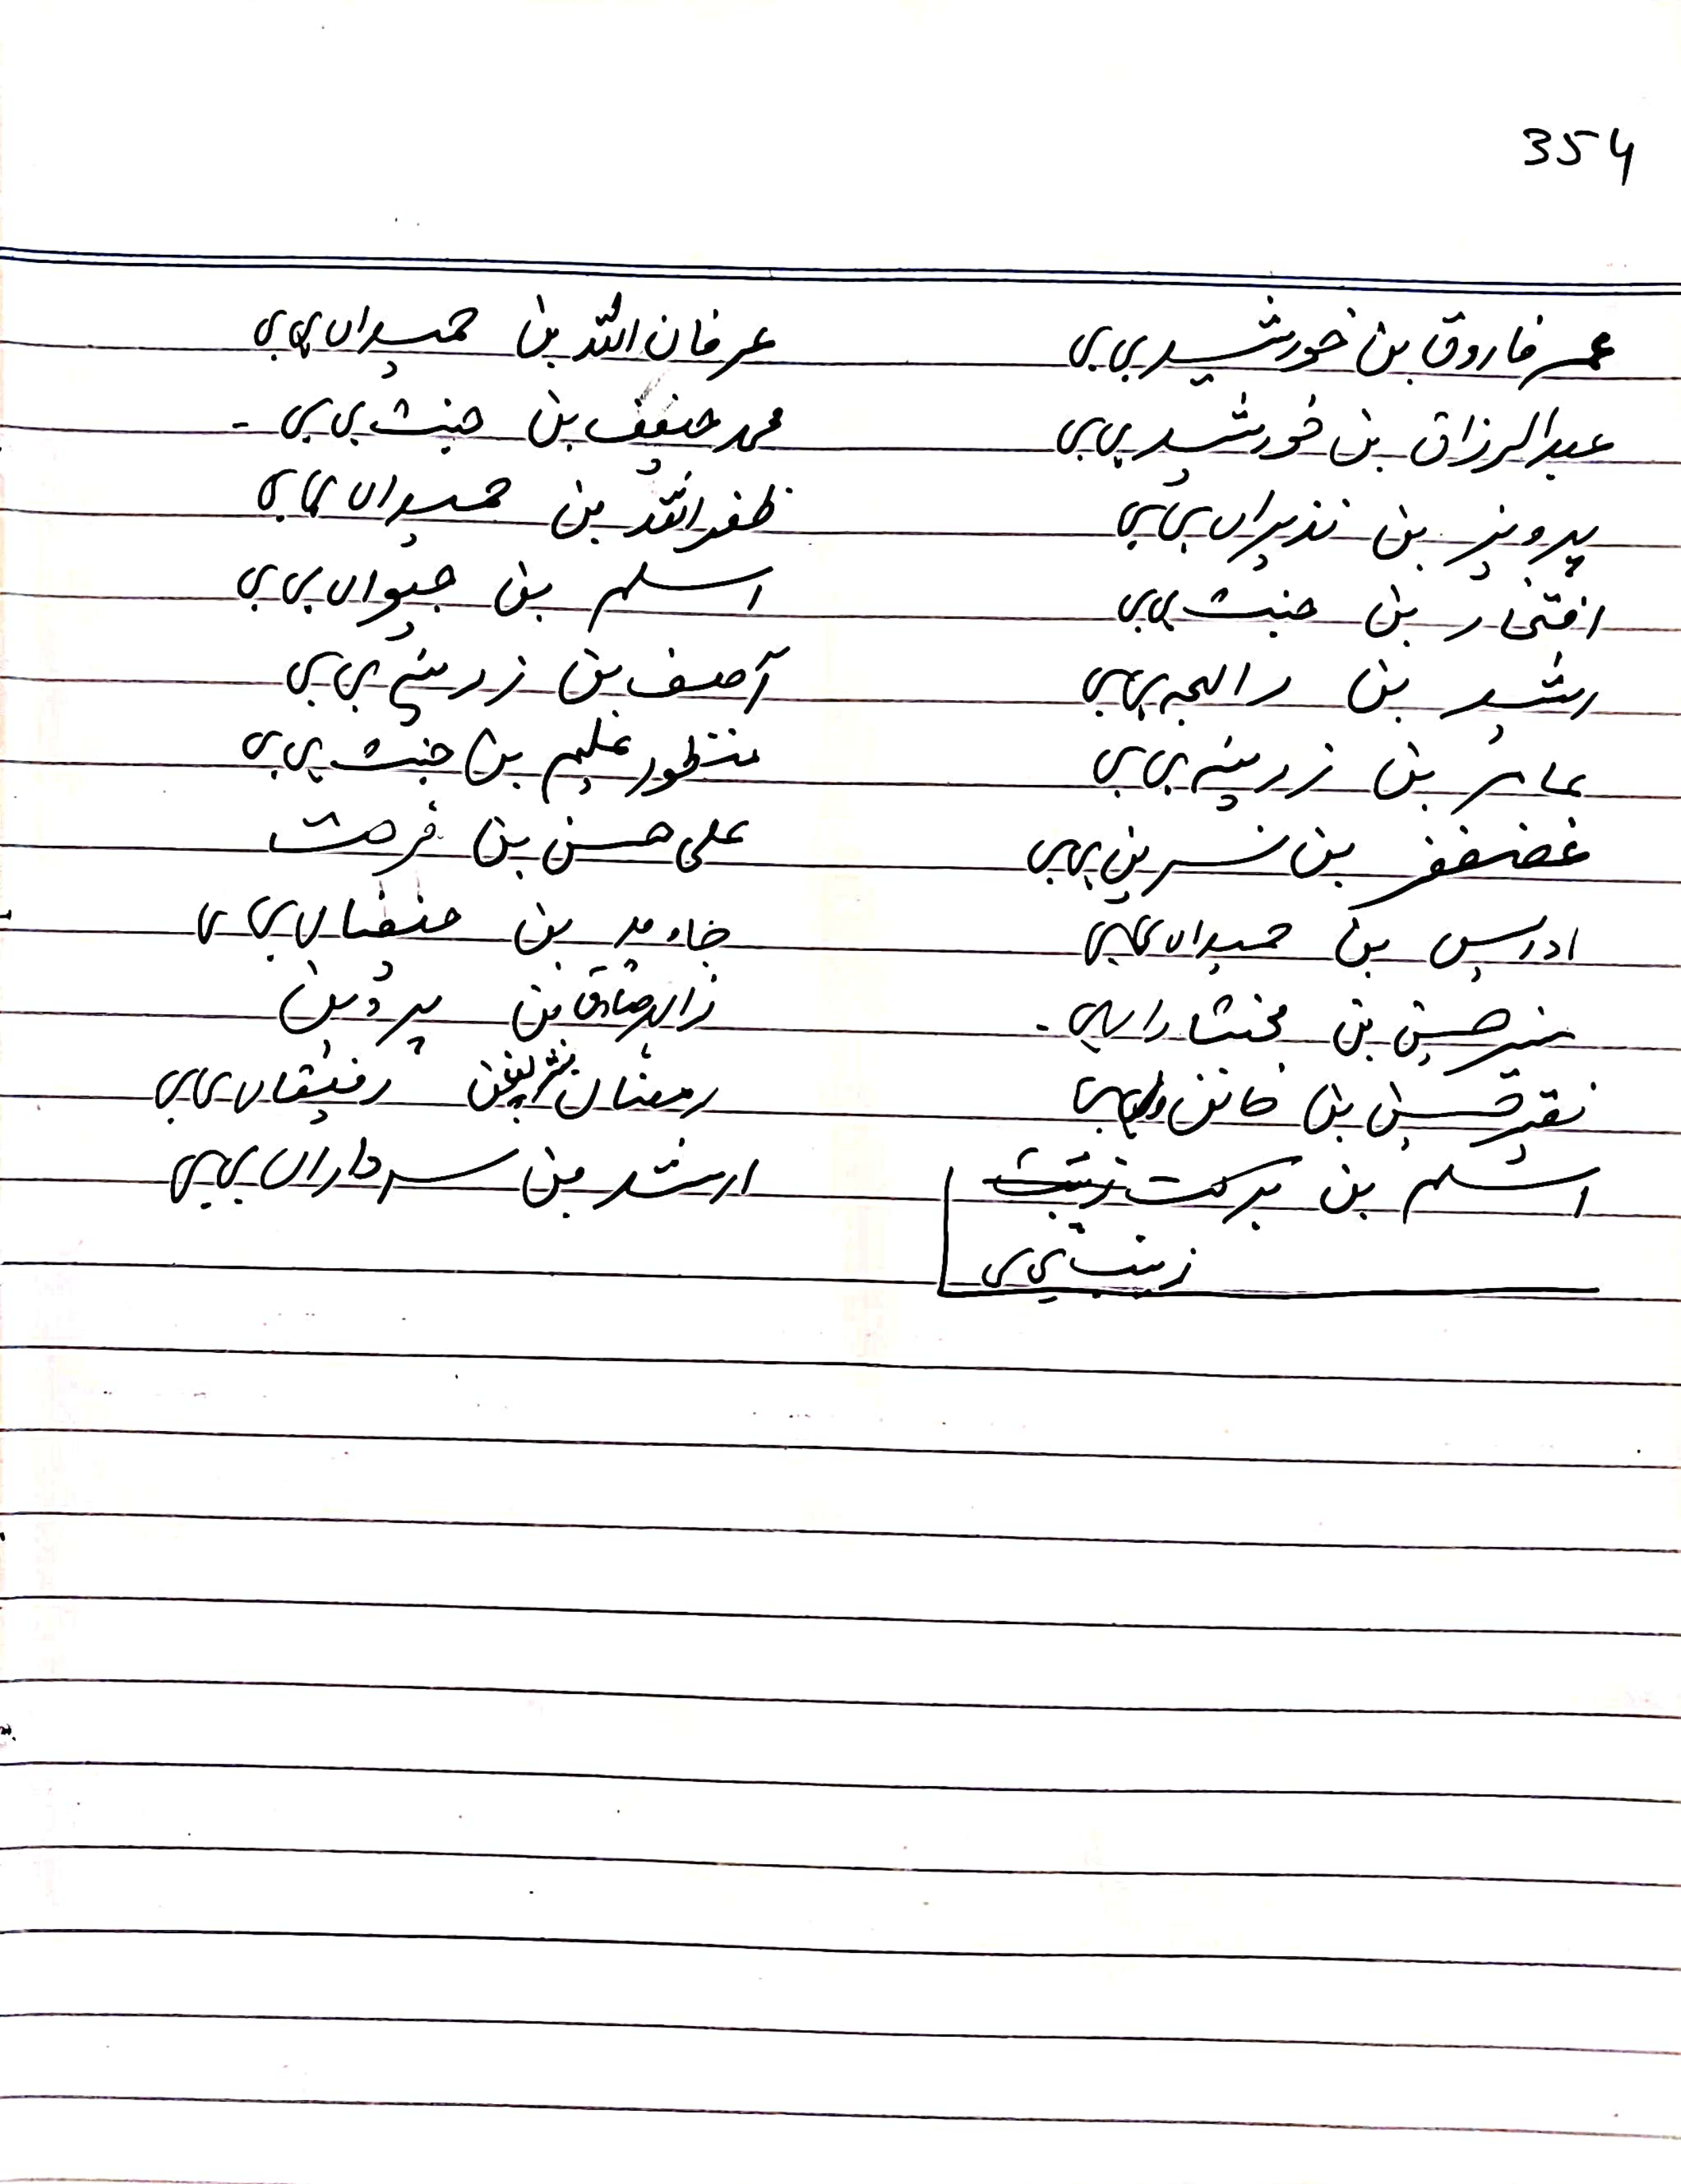 354
عمر فاروق بن خورشید بی بی
عبدالرزاق بن خورشید بی بی
پرویز بن نذیراں بی بی
افتخار بن جنت بی بی
رشید بن رابعہ بی بی
عامر بن زرینہ بی بی
غضنفر بن نسرین بی بی
ادریس بن حمیداں بی بی
منیر حسین بن بختاور
بن خاتون بی بی
اسلم بن برکت زینب
زینب بی بی
عرفان اللہ بن حمیداں بی بی
محمد حنیف بن جنت بی بی -
ظفر اللہ بن حمیداں بی بی
اسلم بن جیواں بی بی
آصف بن زرینہ بی بی
منظور علیم بن جنت بی بی
علی حسن بن فرحت
جاوید بن حنیفاں بی بی
زاہد صادق بن پروین
رمضان شریف بن رفیقاں بی بی
ارشد بن سرداراں بی بی